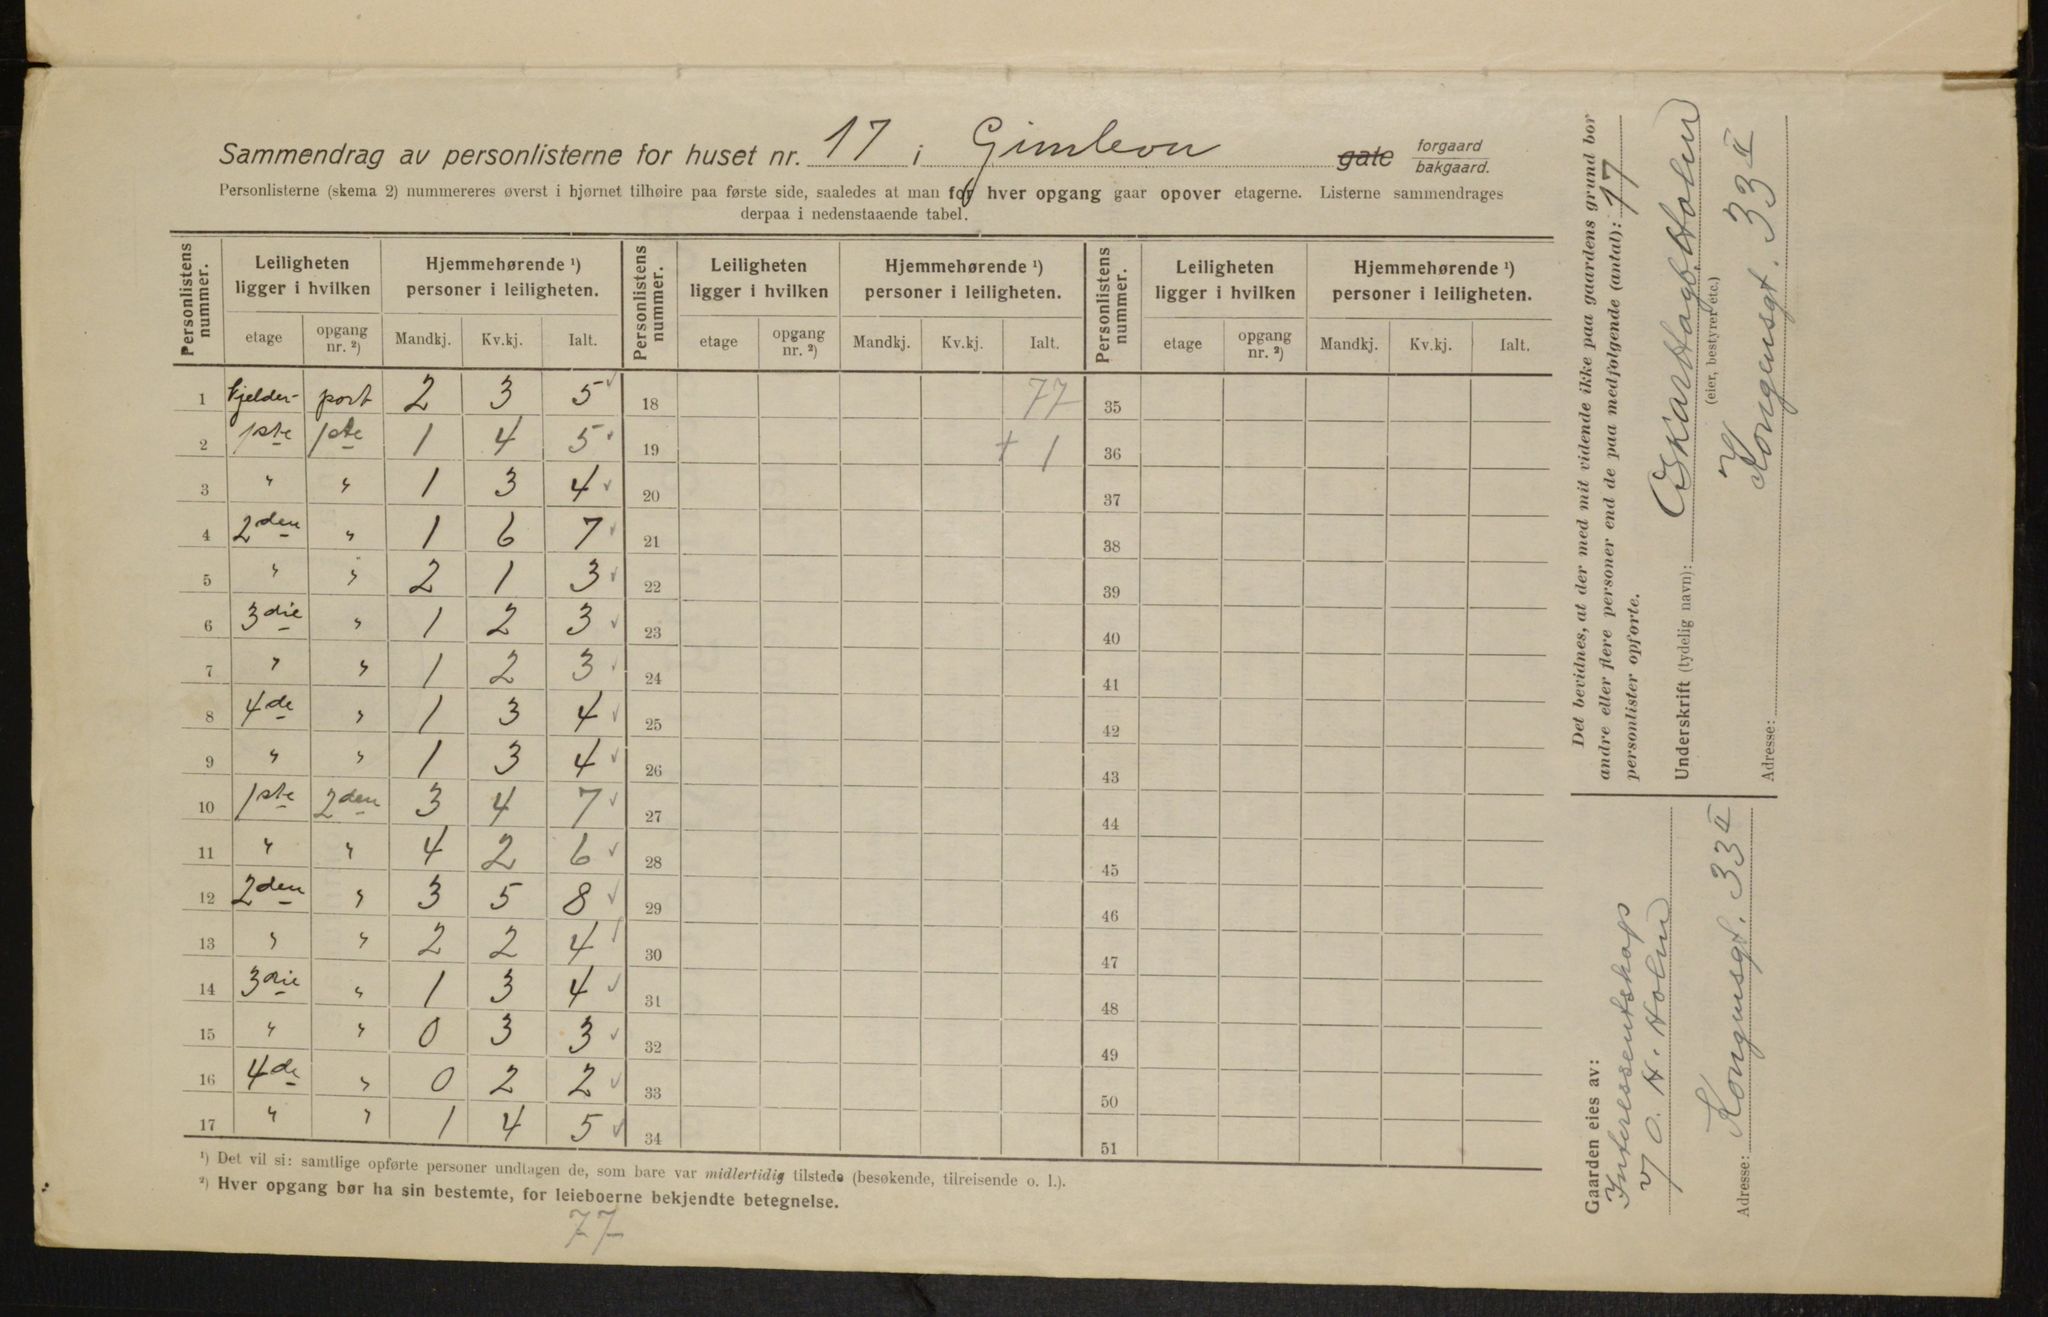 Sammendrag av personlisterne for huset nr. 17 i Gimlevn gate forgaard bakgaard.
Personlisterne (skema 2) nummereres øverst i hjørnet tilhøire paa første side, saaledes at man for hver opgang gaar opover etagerne. Listerne sammendrages
derpaa i nedenstaaende tabel.
Personlistens nummer. Leiligheten ligger i hvilken Hjemmehørende ¹) personer i leiligheten. Personlistens nummer. Leiligheten ligger i hvilken Hjemmehørende ¹) personer i leiligheten. Personlistens nummer. Leiligheten ligger i hvilken Hjemmehørende ¹) personer i leiligheten.
etage opgang nr. ²) Mandkj. Kv.kj. Ialt. etage opgang nr. ²) Mandkj. Kv.kj. Ialt. etage opgang nr. ²) Mandkj. Kv.kj. Ialt.
1 Kjelder- port 2 3 5 18 77 35
2 1ste 1ste 1 4 5 19 + 1 36
3 " " 1 3 4 20 37
4 2den " 1 6 7 21 38
5 " " 2 1 3 22 39
6 3die " 1 2 3 23 40
7 " " 1 2 3 24 41
8 4de " 1 3 4 25 42
9 " " 1 3 4 26 43
10 1ste 2den 3 4 7 27 44
11 " " 4 2 6 28 45
12 2den " 3 5 8 29 46
13 " " 2 2 4 30 47
14 3die " 1 3 4 31 48
15 " " 0 3 3 32 49
16 4de " 0 2 2 33 50
17 " " 1 4 5 34 51
¹) Det vil si: samtlige opførte personer undtagen de, som bare var midlertidig tilstede (besøkende, tilreisende o. l.).
²) Hver opgang bør ha sin bestemte, for leieboerne bekjendte betegnelse.
77
Det bevidnes, at der med mit vidende ikke paa gaardens grund bor
andre eller flere personer end de paa medfølgende (antal): 17
personlister opførte.
Underskrift (tydelig navn): Oskar Hagb. Holm
(eier, bestyrer etc.)
Adresse: Kongensgt. 33 II
Gaarden eies av:
Interessentskap
v/ O. H. Holm
Adresse: Kongensgt. 33 II